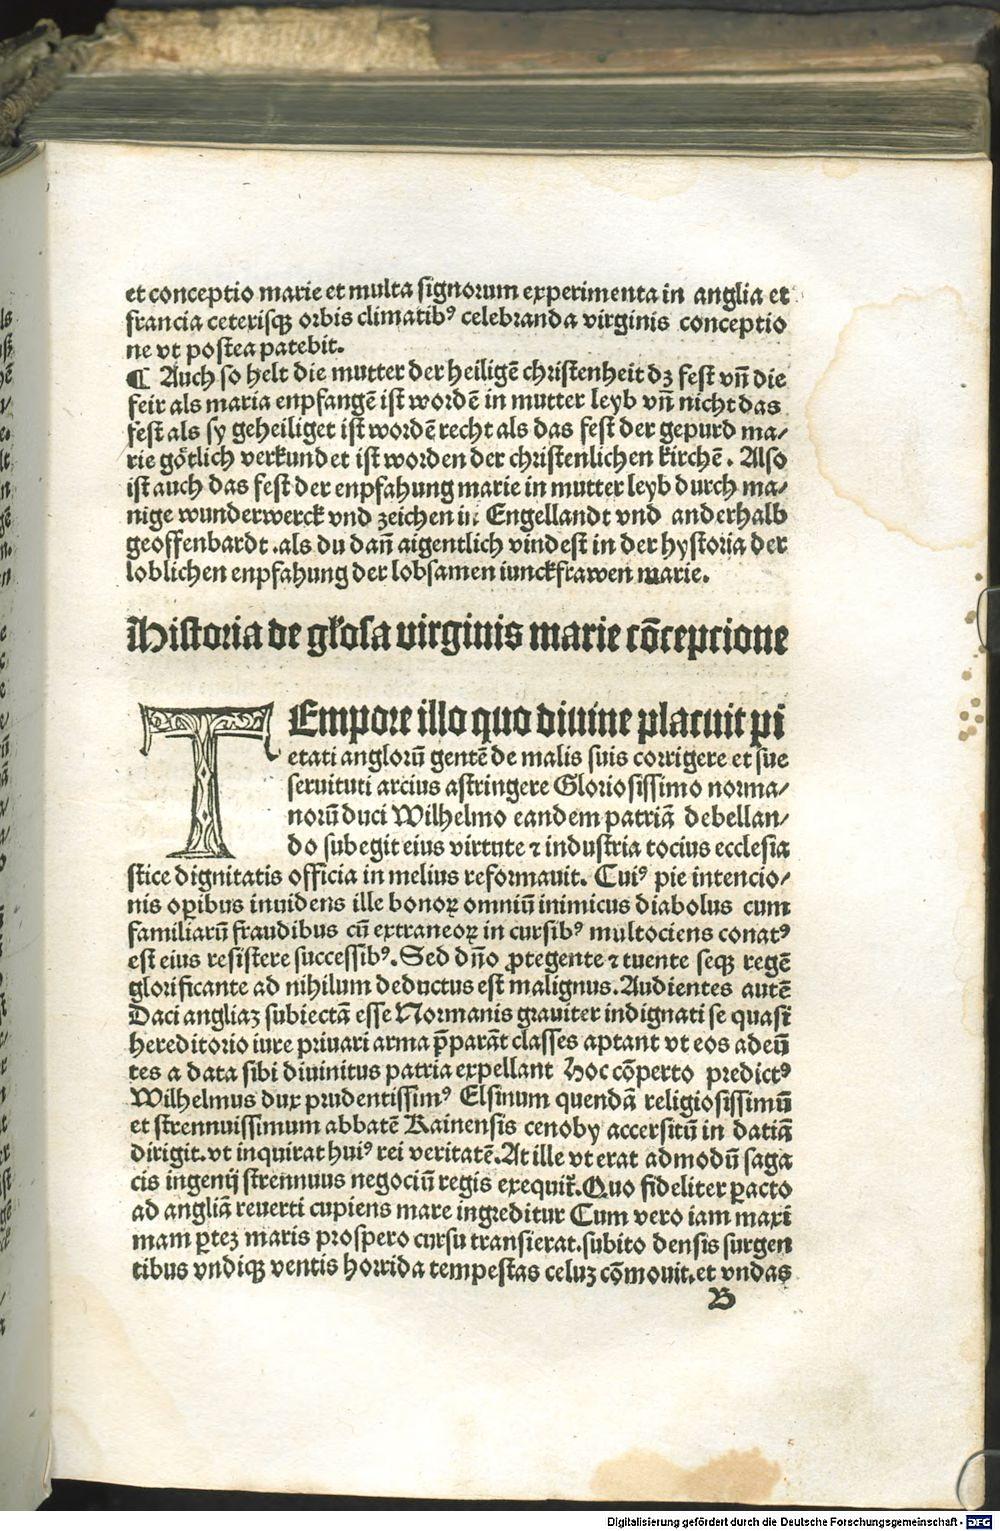 et conceptio marie et multa signorum experimenta in anglia et
francia ceterisqꝫ orbis climatibꝰ celebranda virginis conceptio
ne vt postea patebit.
¶ Auch so helt die mutter der heiligē christenheit dz fest vn̄ die
feir als maria enpfangē ist wordē in mutter leyb vn̄ nicht das
fest als sy geheiliget ist wordē recht als das fest der gepurd ma/
rie gǒtlich verkundet ist worden der christenlichen kirchē. Also
ist auch das fest der enpfahung marie in mutter leyb durch ma/
nige wunderwerck vnd zeichen in Engellandt vnd anderhalb
geoffenbardt .als du dan̄ aigentlich vindest in der hystoria der
loblichen enpfahung der lobsamen iunckfrawen marie.
Historia de gl'osa virginis marie cōcepcione
TEmpore illo quo diuine placuit pi
etati anglorū gentē de malis suis corrigere et sue
seruituti arcius astringere Gloriosissimo norma/
norū duci Wilhelmo eandem patriā debellan/
do subegit eius virtute ⁊ industria tocius ecclesia
stice dignitatis officia in melius reformauit. Cuiꝰ pie intencio/
nis oꝑibus inuidens ille bonoꝝ omniū inimicus diabolus cum
familiarū fraudibus cū extraneoꝝ in cursibꝰ multociens conatꝰ
est eius resistere successibꝰ. Sed dn̄o ꝓtegente ⁊ tuente seqꝫ regē
glorificante ad nihilum deductus est malignus. Audientes autē
Daci angliaꝫ subiectā esse Normanis grauiter indignati se quasi
hereditorio iure priuari arma p̄parāt classes aptant vt eos adeū
tes a data sibi diuinitus patria expellant Hoc cōperto predictꝰ
Wilhelmus dux prudentissimꝰ Elsinum quendā religiosissimū
et strennuissimum abbatē Rainensis cenoby accersitū in datiā
dirigit. vt inquirat huiꝰ rei veritatē. At ille vt erat admodū saga
cis ingenij strennuus negociū regis exequit̃. Quo fideliter ꝑacto
ad angliā reuerti cupiens mare ingreditur Cum vero iam maxi
mam ꝑteꝫ maris prospero cursu transierat. subito densis surgen
tibus vndiqꝫ ventis horrida tempestas celuꝫ cōmouit. et vndas
B
Digitalisierung gefördert durch die Deutsche Forschungsgemeinschaft - DFG